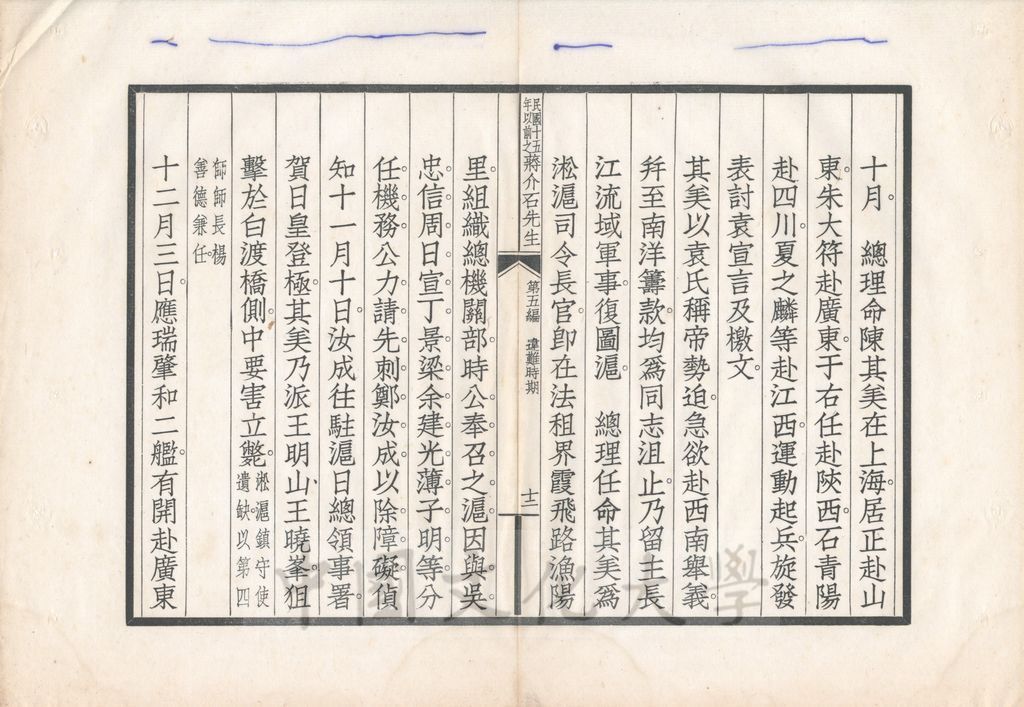 十月。 總理命陳其美在上海。居正赴山
東。朱大符赴廣東。于右任赴陝西。石青陽
赴四川。夏之麟等赴江西。運動起兵。旋發
表討袁宣言及檄文。
其美以袁氏稱帝勢迫。急欲赴西南舉義。
並至南洋籌款。均為同志沮止。乃留主長
江流域軍事。復圖滬。 總理任命其美為
淞滬司令長官。卽在法租界霞飛路漁陽
民國十五年以前之蔣介石先生
第五編 違難時期
十二
里。組織總機關部。時公奉召之滬。因與吳
忠信。周日宣。丁景梁。余建光。薄子明等分
任機務。公力請先刺鄭汝成以除障礙。偵
知十一月十日。汝成往駐滬日總領事署。
賀日皇登極。其美乃派王明山。王曉峯。狙
擊於白渡橋側。中要害立斃。淞滬鎮守使遺缺以第四
師師長楊善德兼任。
十二月三日。應瑞肇和二艦。有開赴廣東
中國文化大學